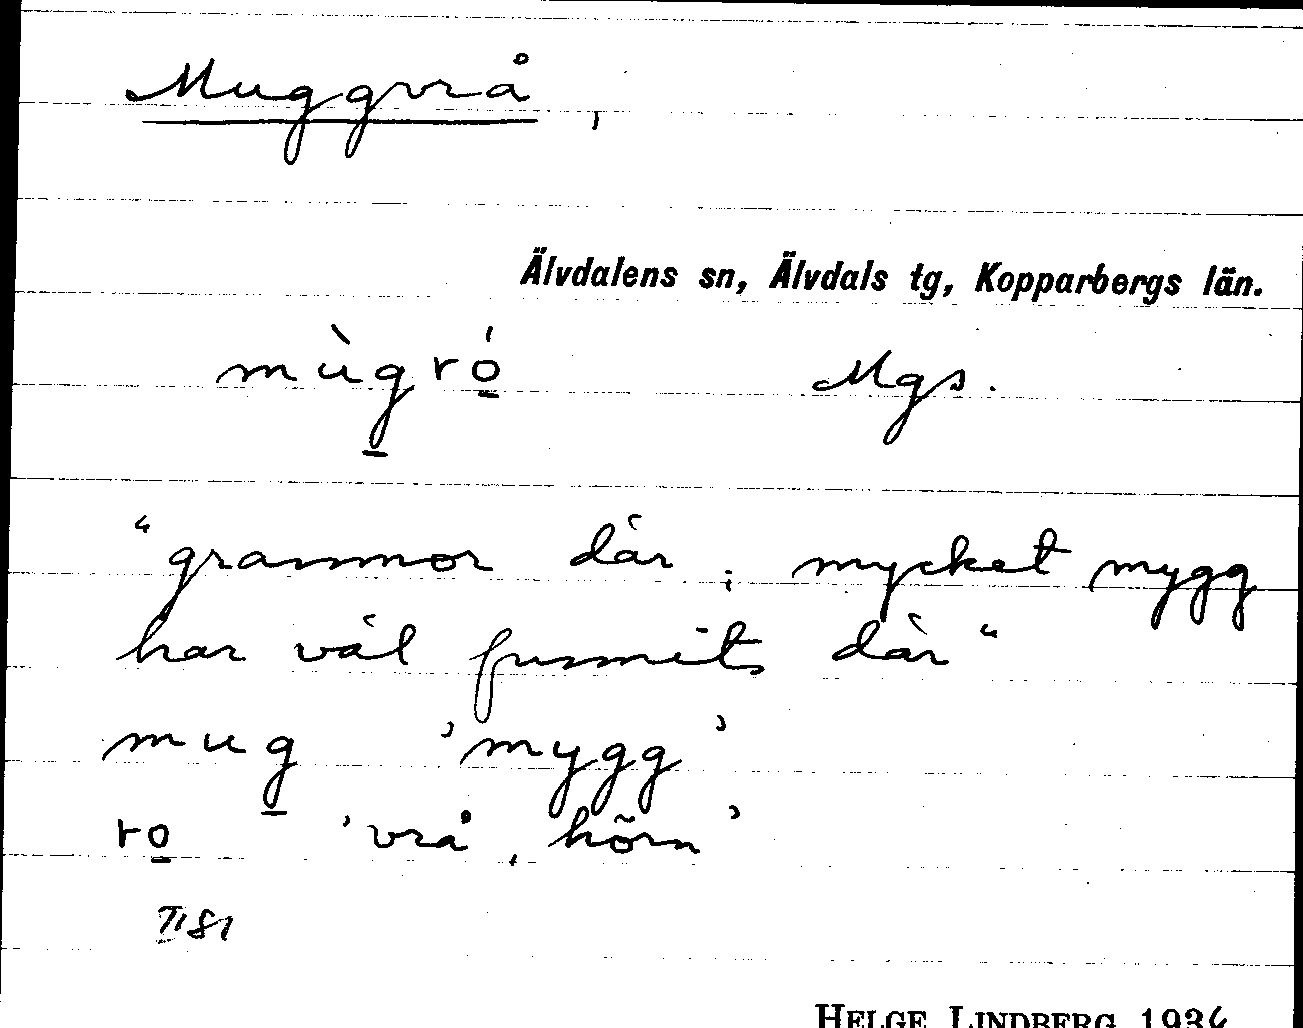 Muggvrå,
Älvdalens sn, Älvdals tg, Kopparbergs län.
mùg̲ró̲ Mgs.
"granmor där; mycket mygg
har väl funnits där"
mug̲ 'mygg'
ro̲ 'vrå, hörn'
II 81
HELGE LINDBERG 1934